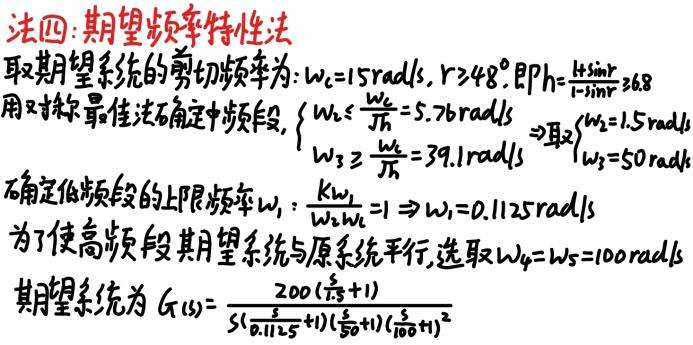 法四:期望频率特性法
取期望系统的剪切频率为: ω_c=15rad/s, r≥48°.即h=\frac{1+sinr}{1-sinr}≥6.8
用对称最佳法确定中频段, { ω₂≤\frac{ω_c}{√h}=5.76rad/s ⇒取{ ω₂=1.5rad/s
ω₃≥\frac{ω_c}{√h}=39.1rad/s ω₃=50rad/s
确定低频段的上限频率ω₁: \frac{Kω₁}{ω₂ω_c}=1⇒ω₁=0.1125rad/s
为了使高频段期望系统与原系统平行,选取ω₄=ω₅=100rad/s
期望系统为 G(s)=\frac{200(\frac{s}{1.5}+1)}{s(\frac{s}{0.1125}+1)(\frac{s}{50}+1)(\frac{s}{100}+1)^2}